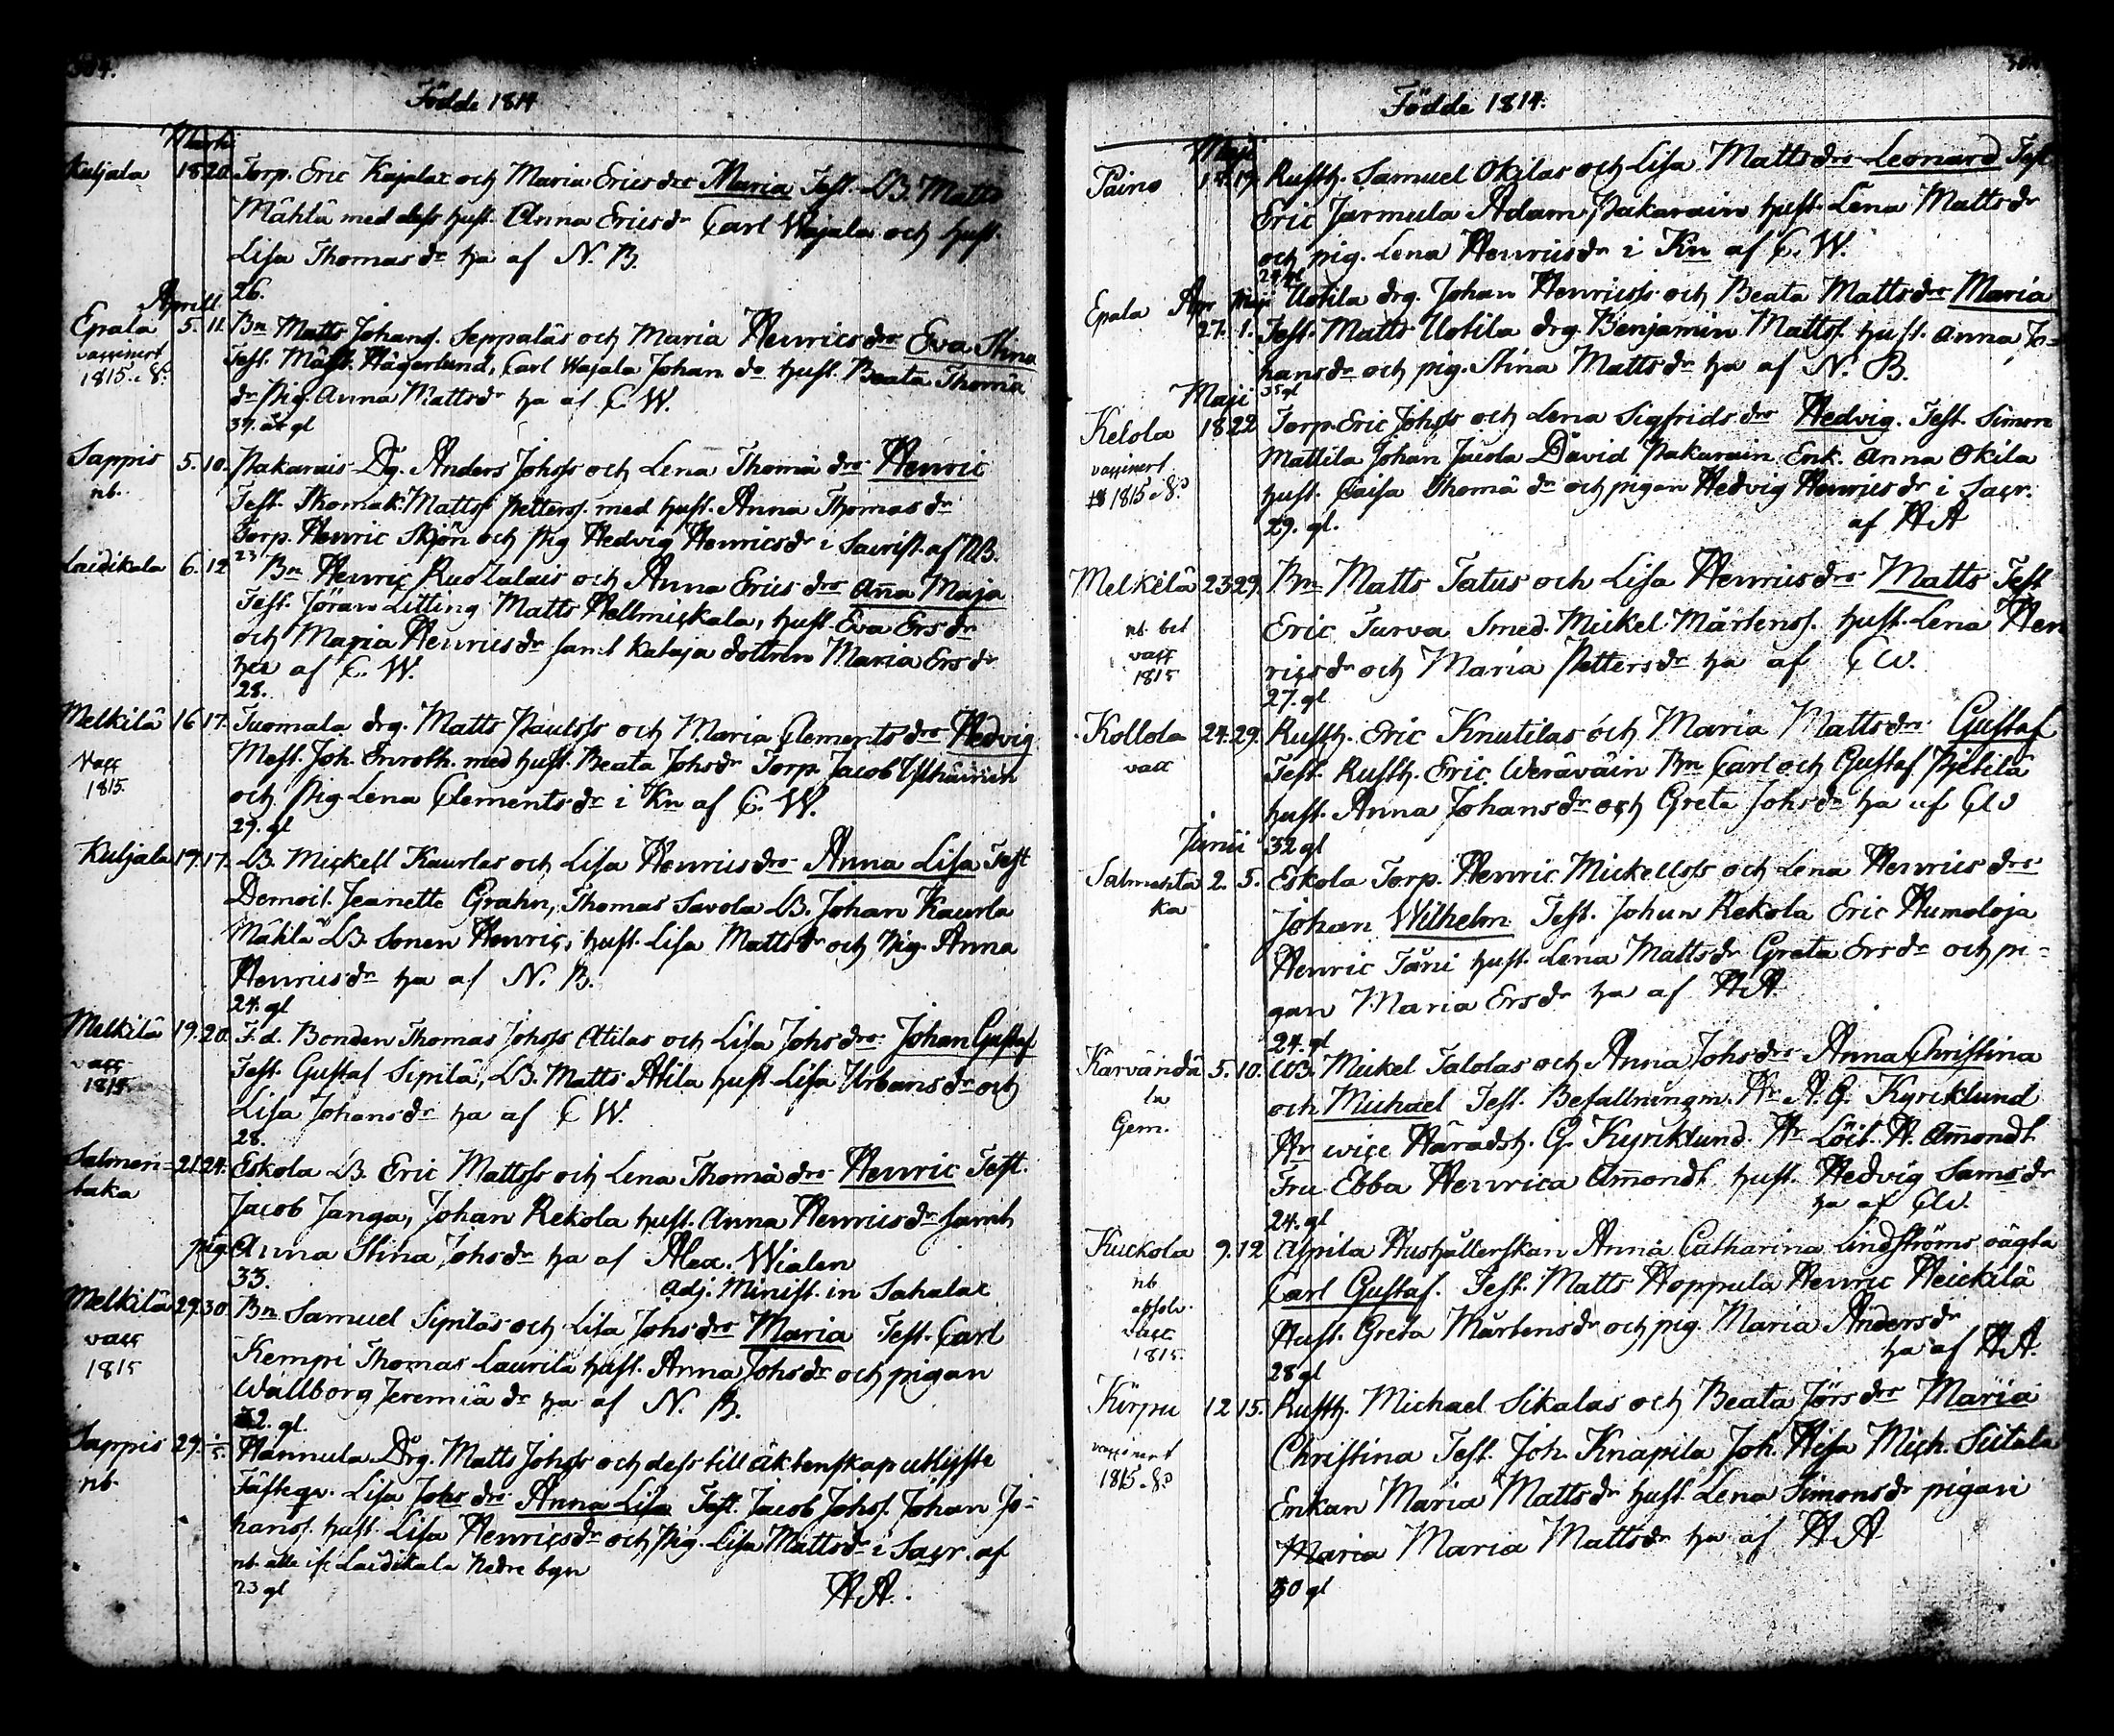 304.
Födde 1814
Martii
Kuljala 18 20. Torp. Eric Kajalac och Maria Ericsdrs Maria Test. LB. Matts
Mähtä med dess hust. Anna Ericsdr Carl Wajala och hust.
Lisa Thomasdr ha af N. B.
26.
Aprill
Epala 5. 11. Bn Matts Johans. Seppaläs och Maria Henricsdrs Eva Stina
vaccinert
1815. 8:
Test. Mäst. Hägerlund, Carl Wajala Johan do hust. Beata Thomä
dr Pig. Anna Mattsdr ha af C. W.
37. år gl
Sappis 5. 10. Pakarais Dg. Anders Johss och Lena Thomädrs Henric
nb.
Test. Thomas Mattss Petterss. med hust. Anna Thomasdr
Torp. Henric Skjön och Pig Hedvig Henricsdr i Sacrist. af NB.
23
Laidikala 6. 12 Bn Henric Ruolalais och Anna Ericsdrs Ana Maja
Test. Jöran Litting Matts Hellmickala, hust. Eva Ersdr
och Maria Henricsdr samt kataja dottren Maria Ersdr
ha af C. W.
28.
Melkilä 16 17. Tuomala drg. Matts Paulss och Maria Clementsdrs Hedvig
Vacc
1815.
Mest. Joh. Enroth. med hust. Beata Johsdr Torp. Jacob
och Pig Lena Clementsdr i Kn af C. W.
29. gl
Kuljala 17. 17. LB. Mickell Kaurlas och Lisa Henricsdrs Anna Lisa Test
Demois. Jeanette Grahn, Thomas Savola LB. Johan Kaurla
Mähtä LB. Sonen Henric, hust. Lisa Mattsdr och Pig. Anna
Henricsdr ha af N. B.
24. gl
Melkilä 19. 20. F.d. Bonden Thomas Johss Atilas och Lisa Johsdrs Johan Gustaf
vacc
1815.
Test. Gustaf Sipilä, LB. Matts Atila hust Lisa Urbansdr och
Lisa Johansdr ha af C W.
28.
Salmen= 21. 24. Eskola LB. Eric Mattss och Lena Thomädrs Henric Test.
taka
Jacob Janga, Johan Rekola hust. Anna Henricsdr samt
pig. Anna Stina Johsdr ha af Alex. Wialen
33. Adj. Minist. in Sahalax
Melkilä 29. 30. Bn Samuel Sipiläs och Lisa Johsdrs Maria Test. Carl
vacc
1815
Kempi Thomas Laurila hust. Anna Johsdr och pigan
Wallborg Jeremiädr ha af N. B.
32. gl.
Sappis 29. 1/5 Hannula Drg. Matts Johss och dess till äktenskap utlyste
nb.
Fästeqv. Lisa Johsdrs Anna Lisa Test. Jacob Johss. Johan Jo=
hanss. hust. Lisa Henricsdr och Pig. Lisa Mattsdr i Sacr. af
nb. alla ifr. Laidikala Nedre byn A A.
23 gl
Födde 1814.
Maji
Paino 18. 19. Rusth. Samuel Okilas och Lisa Mattsdrs Leonard Test
Eric Jarmula Adam Pakarain hust. Lena Mattsdr
och pig. Lena Henricsdr i Kn af C. W.
24 gl
Epala Apr Maji Uotila drg. Johan Henricss och Beata Mattsdrs Maria
27. 1. Test. Matts Uotila drg. Benjamin Mattss. hust. Anna Jo=
hansdr och pig. Stina Mattsdr ha af N. B.
Maji 35 gl
Kelola 18 22 Torp. Eric Johss och Lena Sigfridsdrs Hedvig. Test. Simon
vaccinert
1815. 8:
Mattila Johan Jacola David Pakarain Enk. Anna Okila
hust. Caisa Thomädr och pigan Hedvig Henricsdr i Sacr.
29. gl. af A A
Melkilä 23 29. Bn Matts Tatus och Lisa Henricsdrs Matts Test
nb. bet
vacc
1815
Eric Turva Smed. Mickel Mårtenss. hust. Lena Hen
ricsdr och Maria Pettersdr ha af C W.
27. gl
Kollola 24. 29. Rusth. Eric Knutilas och Maria Mattsdrs Gustaf
vacc
Test. Rusth. Eric Weräväin Bn Carl och Gustaf Pjetilä
hust. Anna Johansdr och Greta Johsdr ha af C W
Junii 32 gl
Salmenta 2. 5. Eskola Torp. Henric Mickellss och Lena Henricsdrs
ka
Johan Wilhelm Test. Johan Rekola Eric Humaloja
Henric Jåni hust. Lena Mattsdr Greta Ersdr och pi=
gan Maria Ersdr ha af A A
24. gl
Kärvändä 5. 10. LB. Mickel Talolas och Anna Johsdrs Anna Christina
la
Gem.
och Michael Test. Befallningm. Hr A. G. Kyrcklund
Hr wice Häradsh. G. Kyrcklund Hr Löit. A. Amondt
Fru Ebba Henrica Amondt hust. Hedvig Samsdr
ha af C W.
24. gl
Kuckola 9. 12 Alpila Hushållerskan Anna Catharina Lindströms oägta
nb
absolv.
vacc
1815.
Carl Gustaf. Test. Matts Hoppula Henric Heickilä
Hust. Greta Mårtensdr och pig. Maria Andersdr
ha af A A.
28 gl
Kirpu 12 15. Rusth. Michael Sikalas och Beata Jörsdrs Maria
vaccinert
1815. 8:
Christina Test. Joh. Knapila Joh. Heja Mich. Siitala
Enkan Maria Mattsdr hust. Lena Simonsdr pigan
Maria Maria Mattsdr ha af A A
30 gl